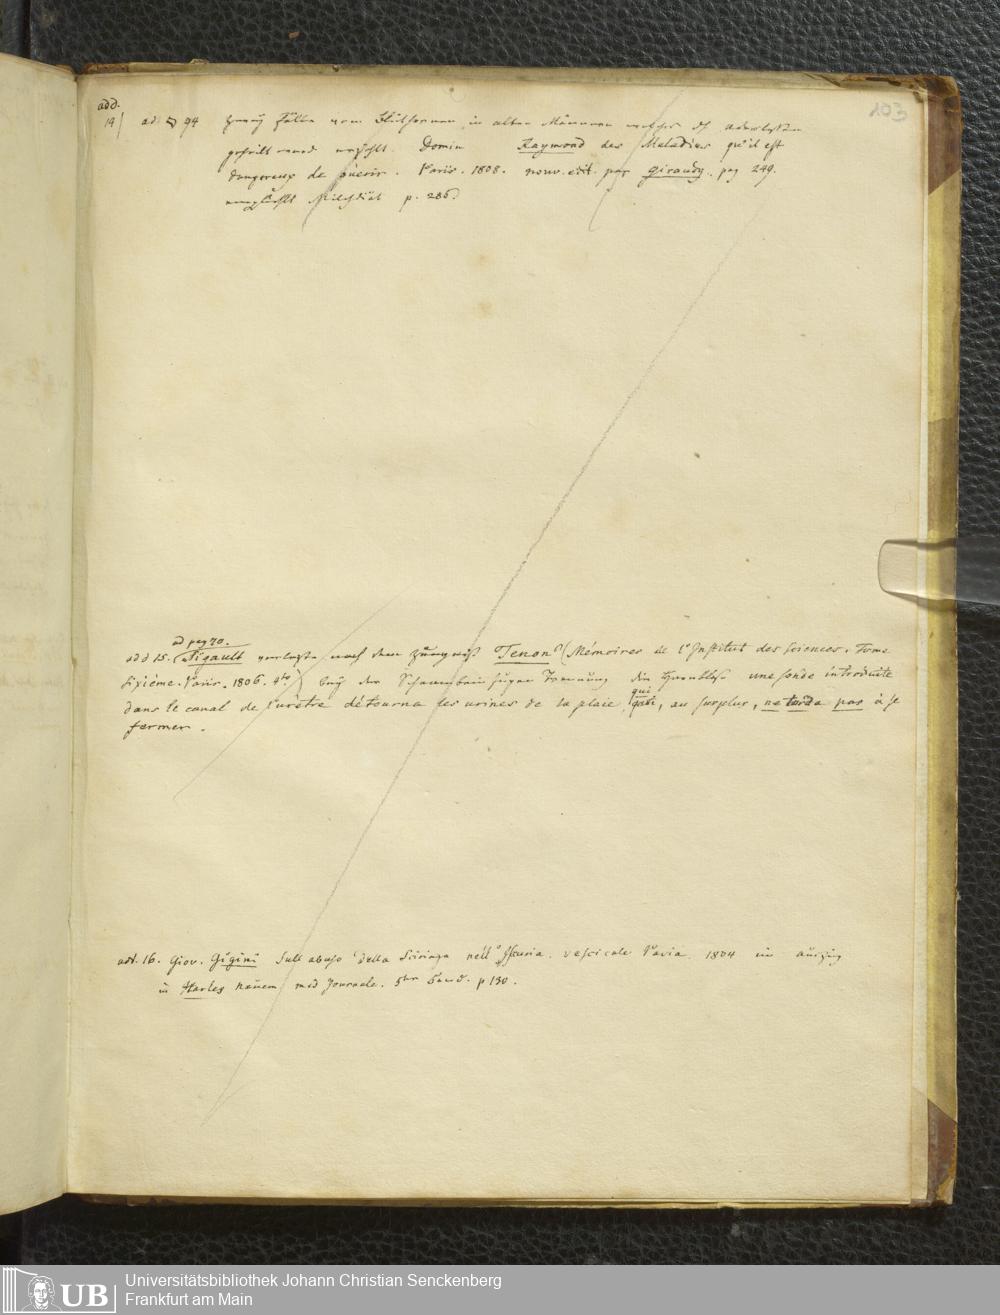 103
add.
14) ad. § 94 Zwey Fälle vom Blutharnen in alten Männern welches
gestillt ward erzählt. Domin Raymond des Maladies qu'il est
dangereux de guérir. Paris. 1808. nouv. edit. par Giraudy. pag 249.
empfiehlt Milchdiät p. 286.
ad pag 70.
add 15. Nigault verletzte nach dem Zeugniß Tenon's (Mémoires de l'Institut des Sciences. Tome
sixième. Paris. 1806. 4to) bey der Trennung die Harnblase une sonde introduite
dans le canal de l'urètre détourna les urines de la plaie, qui, au surplus, ne tarda pas à se
fermer.
add. 16. Giov. Gigini Sull abuso della Sciringa nell' Iscuria vescicale Pavia 1804 im Auszug
in Harles neuem med Journale. 5ter Band. p 130.
Universitätsbibliothek Johann Christian Senckenberg
Frankfurt am Main
UB